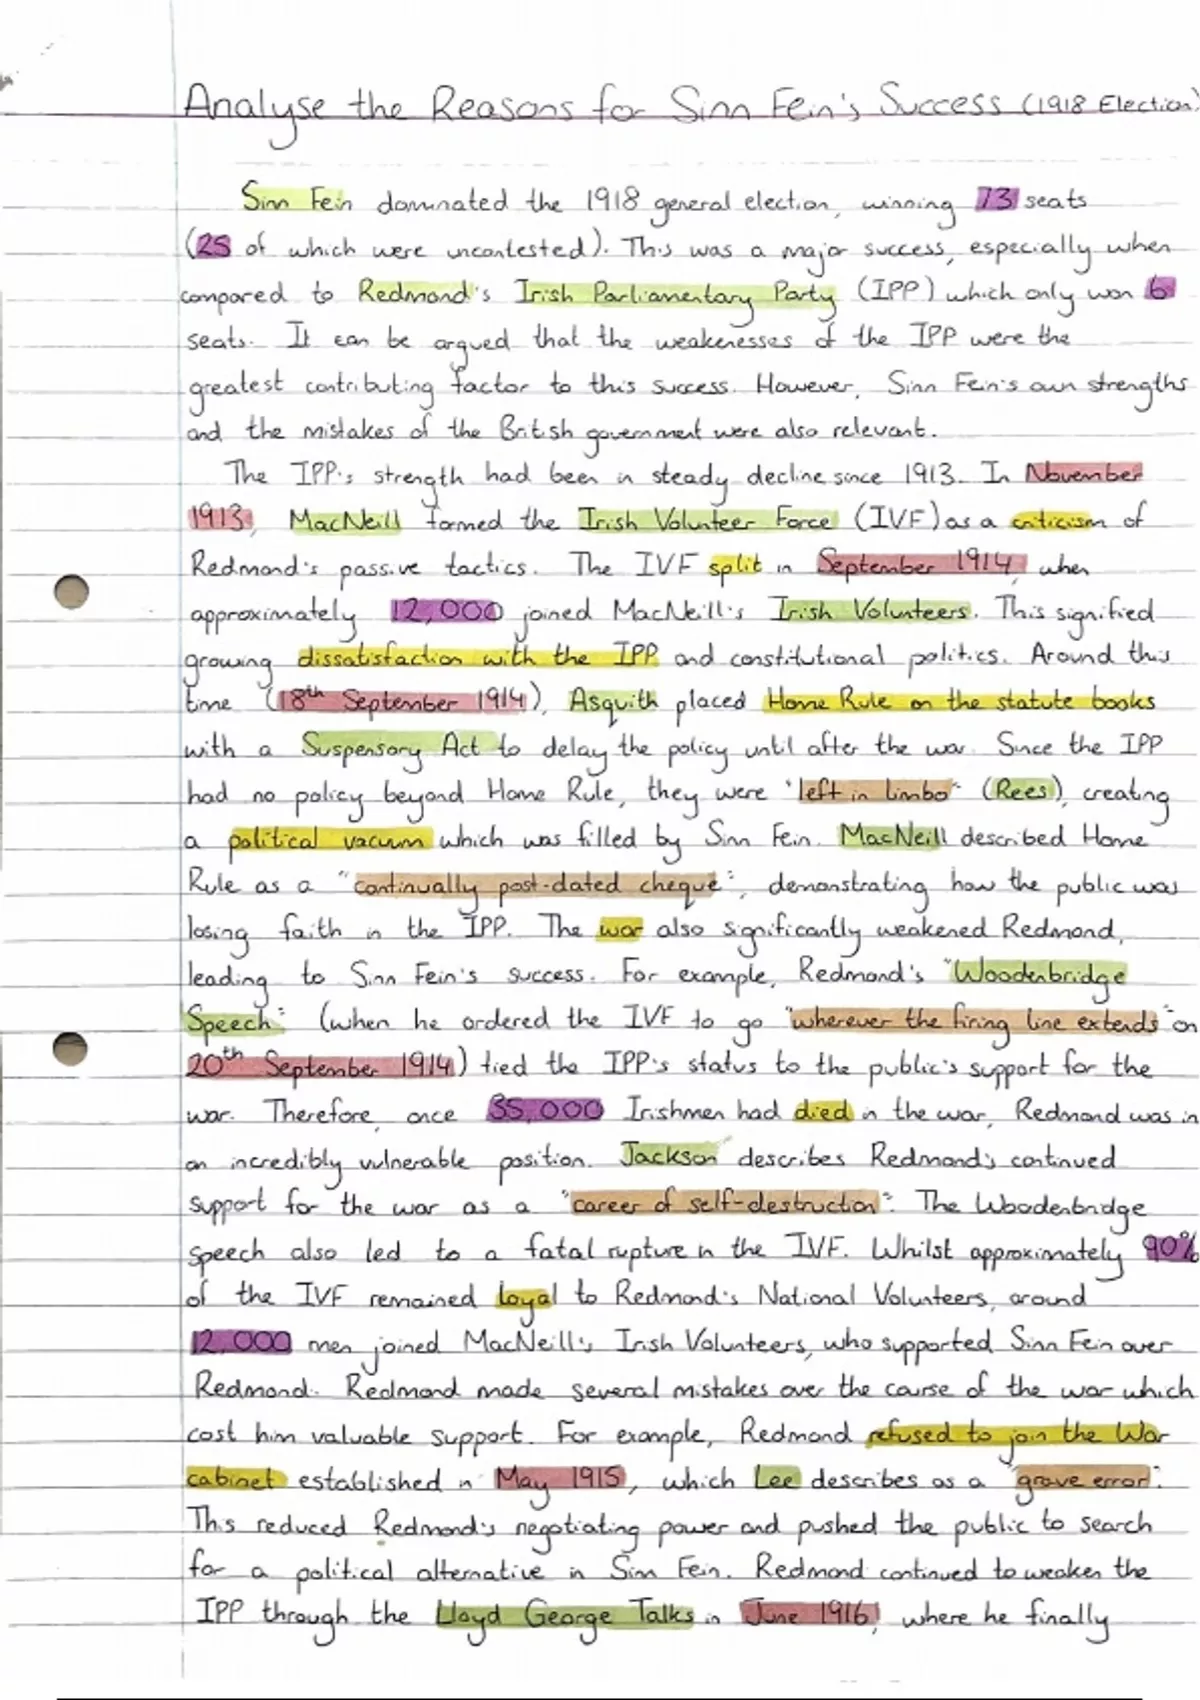 Analyse the Reasons for Sinn Fein's Success (1918 Election)
Sinn Fein dominated the 1918 general election, winning 73 seats
(25 of which were uncontested). This was a major success, especially when
compared to Redmond's Irish Parliamentary Party (IPP) which only won 6
seats. It can be argued that the weakenesses of the IPP were the
greatest contributing factor to this success. However, Sinn Fein's own strengths
and the mistakes of the British government were also relevant.
The IPP's strength had been in steady decline since 1913. In November
1913, MacNeill formed the Irish Volunteer Force (IVF) as a criticism of
Redmond's passive tactics. The IVF split in September 1914, when
approximately 12,000 joined MacNeill's Irish Volunteers. This signified
growing dissatisfaction with the IPP and constitutional politics. Around this
time (18th September 1914), Asquith placed Home Rule on the statute books
with a Suspensory Act to delay the policy until after the war. Since the IPP
had no policy beyond Home Rule, they were "left in limbo" (Rees), creating
a political vacuum which was filled by Sinn Fein. MacNeill described Home
Rule as a "continually post-dated cheque", demonstrating how the public was
losing faith in the IPP. The war also significantly weakened Redmond,
leading to Sinn Fein's success. For example, Redmond's "Woodenbridge
Speech" (when he ordered the IVF to go "wherever the firing line extends" on
20th September 1914) tied the IPP's status to the public's support for the
war. Therefore, once 35,000 Irishmen had died in the war, Redmond was in
an incredibly vulnerable position. Jackson describes Redmond's continued
support for the war as a "career of self-destruction". The Woodenbridge
speech also led to a fatal rupture in the IVF. Whilst approximately 90%
of the IVF remained loyal to Redmond's National Volunteers, around
12,000 men joined MacNeill's Irish Volunteers, who supported Sinn Fein over
Redmond. Redmond made several mistakes over the course of the war which
cost him valuable support. For example, Redmond refused to join the War
cabinet established in May 1915, which Lee describes as a "grave error".
This reduced Redmond's negotiating power and pushed the public to search
for a political alternative in Sinn Fein. Redmond continued to weaken the
IPP through the Lloyd George Talks in June 1916, where he finally